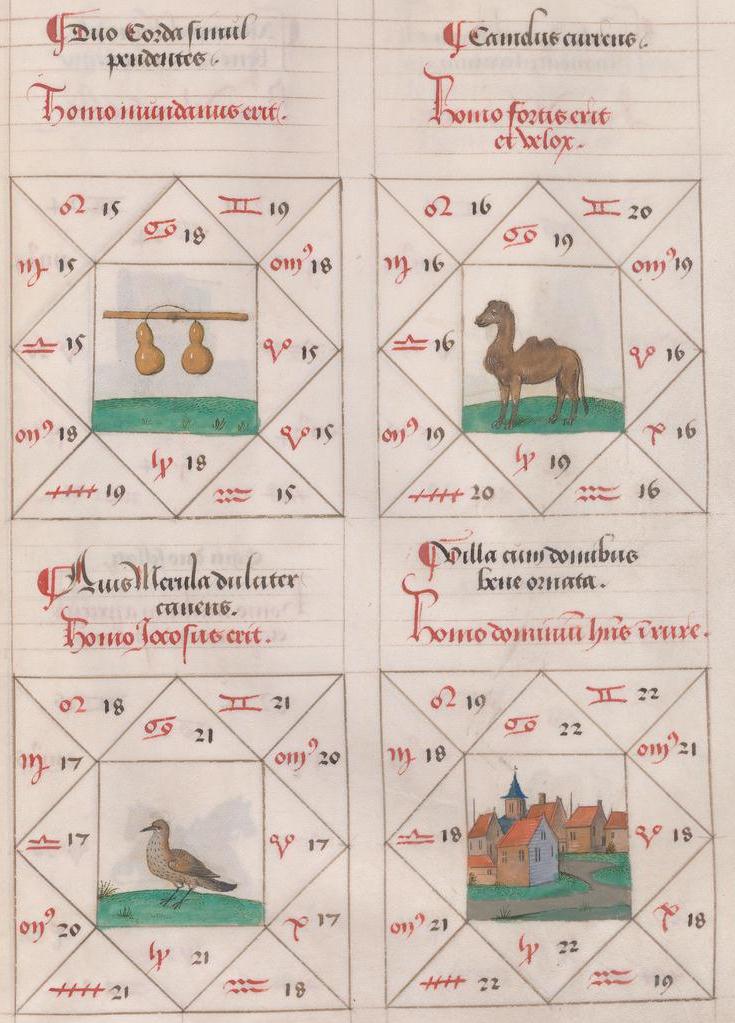 Duo Corda simul
pendentes.
Homo mundanus erit.
♌ 15
♊ 19
♋ 18
♍ 15
om⁹ 18
♎ 15
♈ 15
om⁹ 18
♈ 15
♑ 18
♓ 19
♒ 15
Camelus currens.
Homo fortis erit
et velox.
♌ 16
♊ 20
♋ 19
♍ 16
om⁹ 19
♎ 16
♈ 16
om⁹ 19
16
♑ 19
♓ 20
♒ 16
Auis Merula dulciter
canens.
Homo Jocosus erit.
♌ 18
♊ 21
♋ 21
♍ 17
om⁹ 20
♎ 17
♈ 17
om⁹ 20
17
♑ 21
♓ 21
♒ 18
Villa cum domibus
bene ornata.
Homo dominiũ hñs ĩ rure.
♌ 19
♊ 22
♋ 22
♍ 18
om⁹ 21
♎ 18
♈ 18
om⁹ 21
18
♑ 22
♓ 22
♒ 19